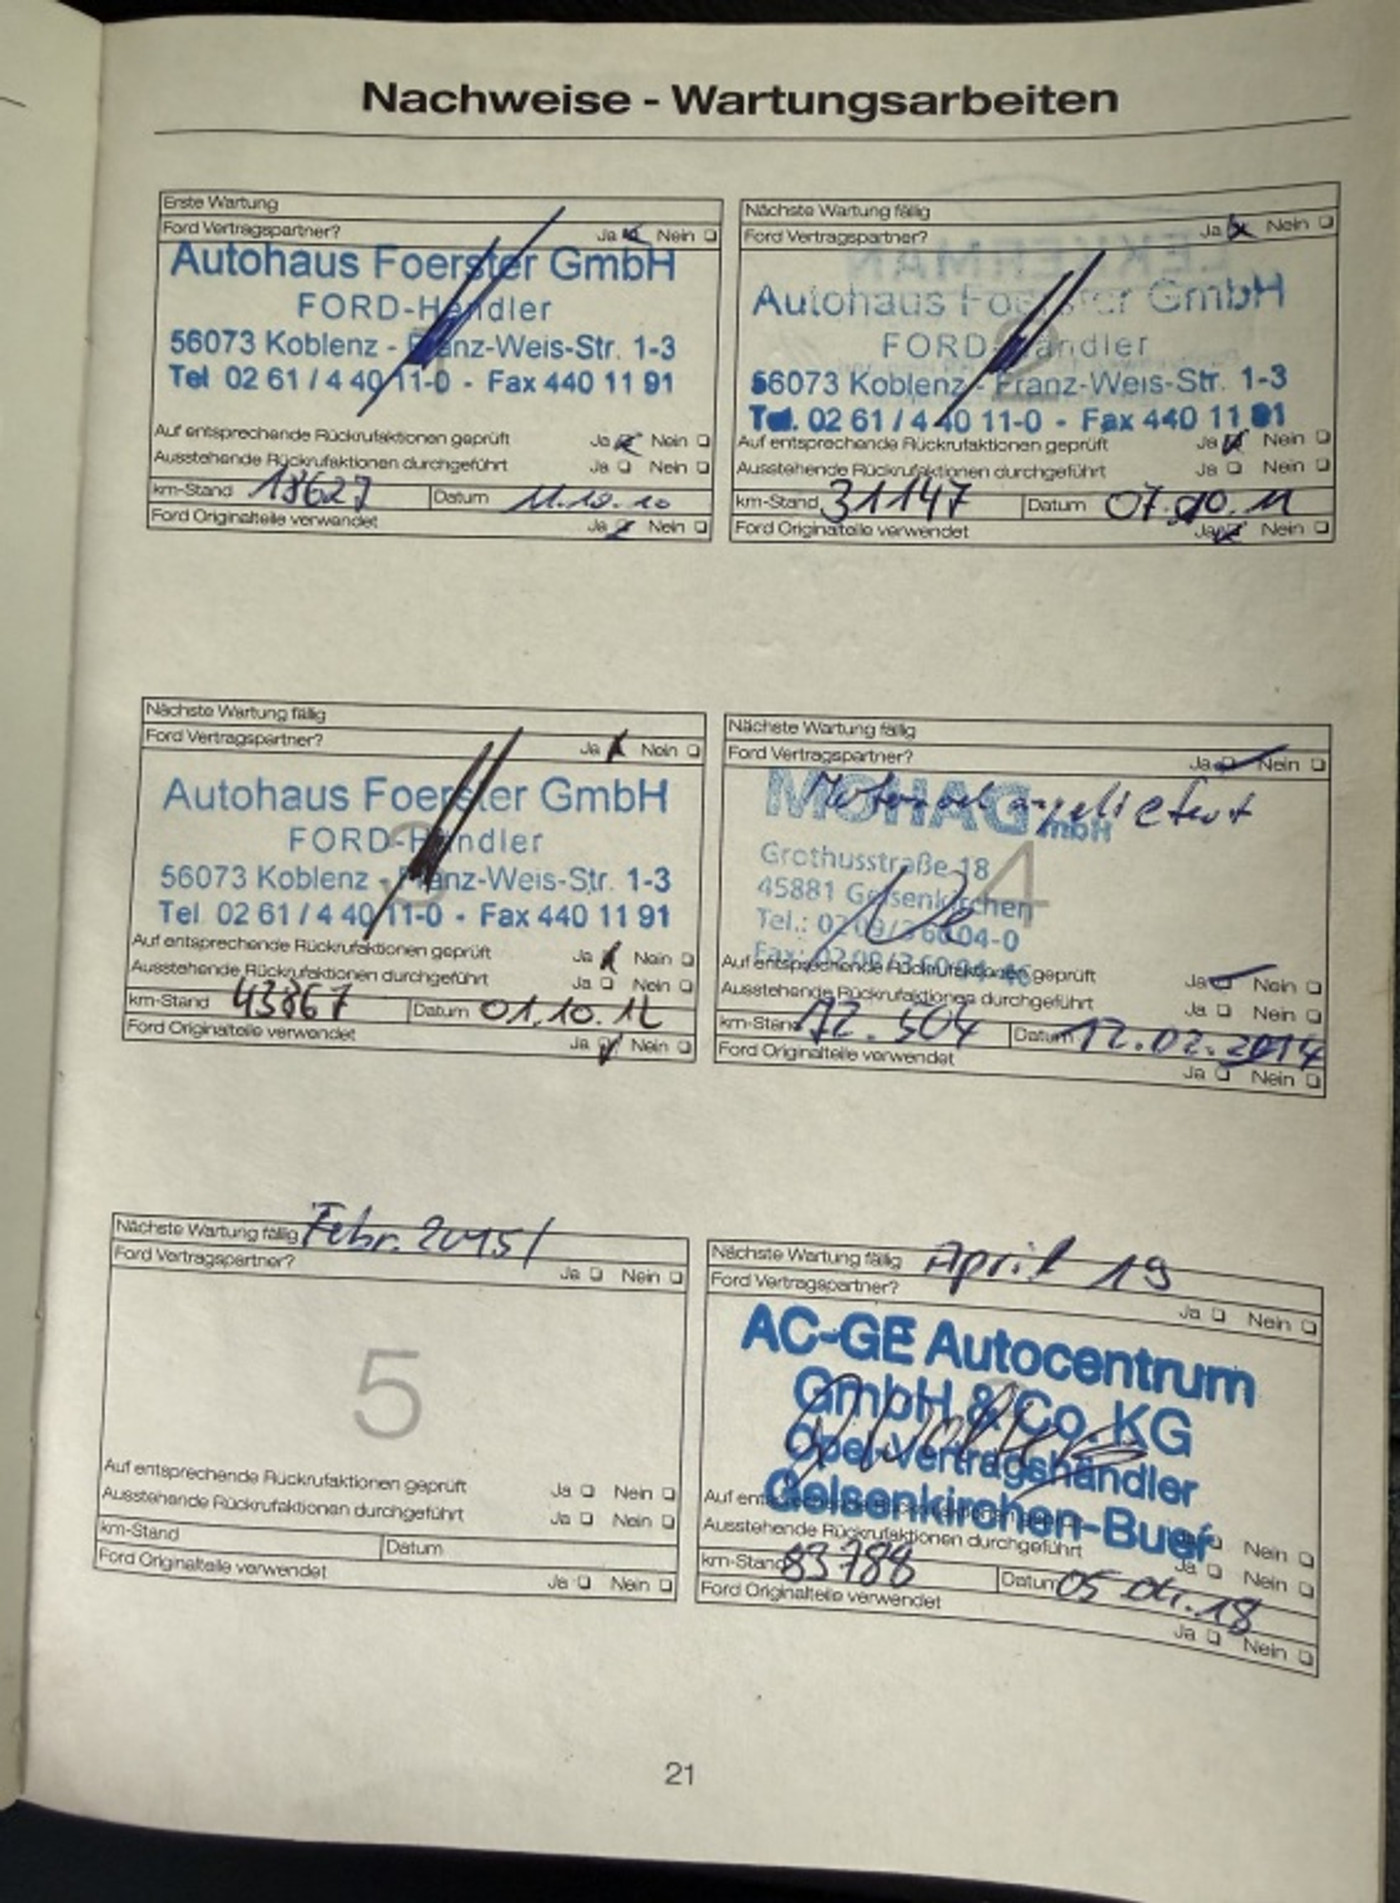 Nachweise - Wartungsarbeiten
Erste Wartung
Ford Vertragspartner? Ja Nein
Autohaus Foerster GmbH
FORD-Händler
56073 Koblenz - Franz-Weis-Str. 1-3
Tel 02 61 / 4 40 11-0 - Fax 440 11 91
Auf entsprechende Rückrufaktionen geprüft Ja Nein
Ausstehende Rückrufaktionen durchgeführt Ja Nein
km-Stand 18627 Datum 11.10.10
Ford Originalteile verwendet Ja Nein
Nächste Wartung fällig
Ford Vertragspartner? Ja Nein
Autohaus Foerster GmbH
FORD-Händler
2
56073 Koblenz - Franz-Weis-Str. 1-3
Tel. 02 61 / 4 40 11-0 - Fax 440 11 91
Auf entsprechende Rückrufaktionen geprüft Ja Nein
Ausstehende Rückrufaktionen durchgeführt Ja Nein
km-Stand 31147 Datum 07.10.11
Ford Originalteile verwendet Ja Nein
Nächste Wartung fällig
Ford Vertragspartner? Ja Nein
Autohaus Foerster GmbH
FORD-Händler
3
56073 Koblenz - Franz-Weis-Str. 1-3
Tel 02 61 / 4 40 11-0 - Fax 440 11 91
Auf entsprechende Rückrufaktionen geprüft Ja Nein
Ausstehende Rückrufaktionen durchgeführt Ja Nein
km-Stand 43867 Datum 01.10.12
Ford Originalteile verwendet Ja Nein
Nächste Wartung fällig
Ford Vertragspartner? Ja Nein
Motoroel angeliefert
MOHAG mbH
4
Grothusstraße 18
45881 Gelsenkirchen
Tel.: 02 09 / 3 60 04-0
Fax: 02 09 / 3 60 04-46
Auf entsprechende Rückrufaktionen geprüft Ja Nein
Ausstehende Rückrufaktionen durchgeführt Ja Nein
km-Stand 72.504 Datum 12.02.2014
Ford Originalteile verwendet Ja Nein
Nächste Wartung fällig Febr. 2015/
Ford Vertragspartner? Ja Nein
5
Auf entsprechende Rückrufaktionen geprüft Ja Nein
Ausstehende Rückrufaktionen durchgeführt Ja Nein
km-Stand Datum
Ford Originalteile verwendet Ja Nein
Nächste Wartung fällig April 19
Ford Vertragspartner? Ja Nein
AC-GE Autocentrum
GmbH & Co. KG
Opel-Vertragshändler
Gelsenkirchen-Buer
Auf entsprechende Rückrufaktionen geprüft Ja Nein
Ausstehende Rückrufaktionen durchgeführt Ja Nein
km-Stand 83788 Datum 05 04.18
Ford Originalteile verwendet Ja Nein
21